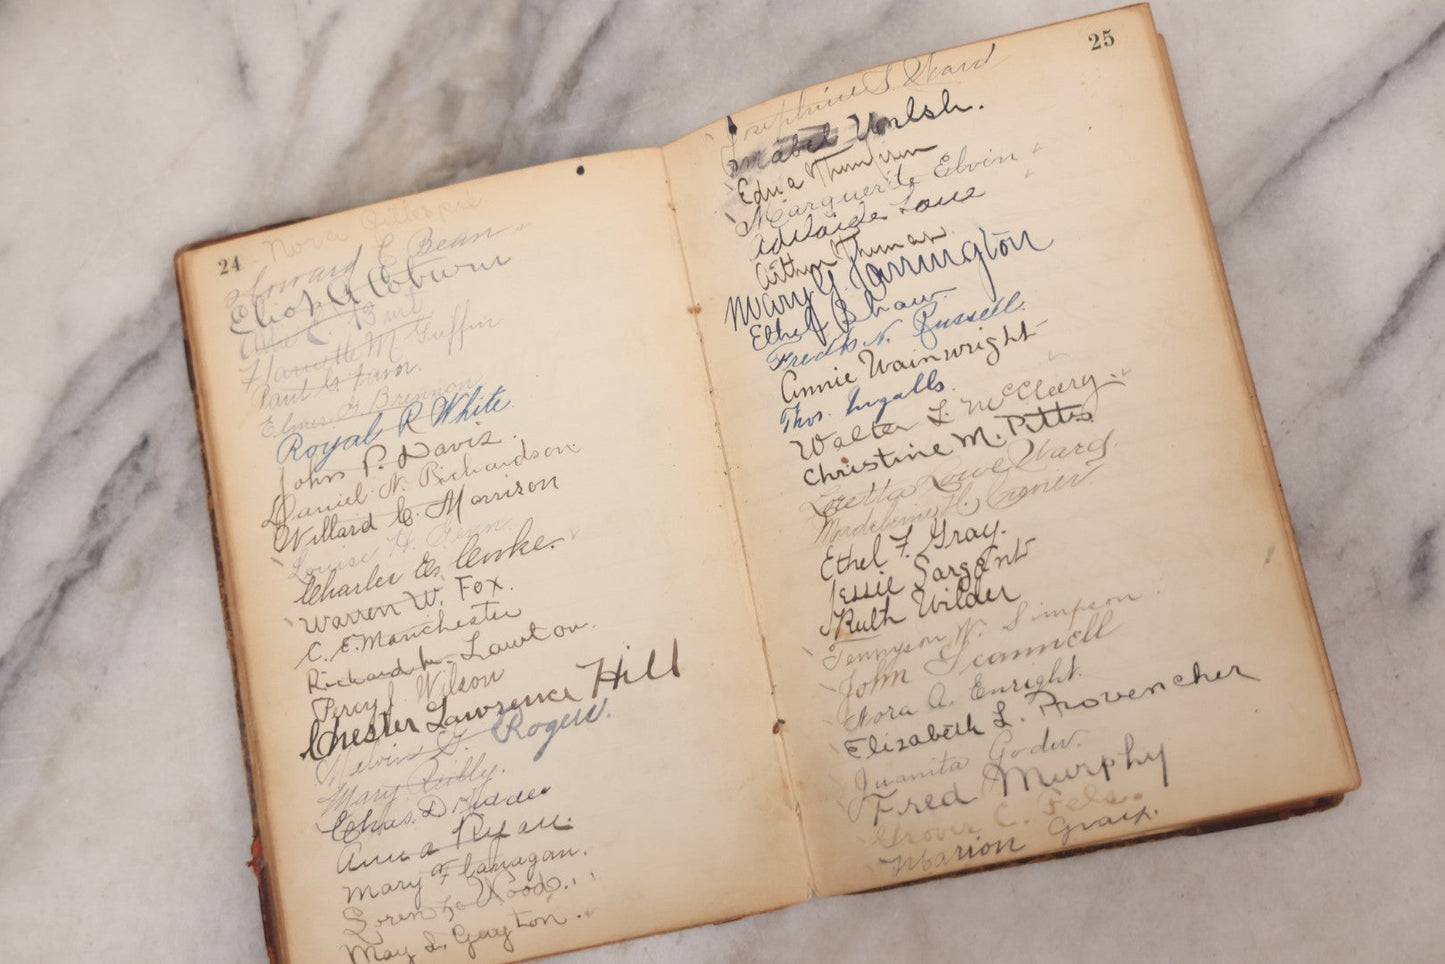 24
Nova Gillespie
Howard C Bean
Eliot A Coburn
Burt
Harriette M Guffin
Paul G Favor.
Elmer G Brennon
Royal R White.
John P. Davis.
Daniel N. Richardson
Willard C. Morrison
Louise H.
Charles E. Cooke.
Warren W. Fox.
C. E. Manchester
Richard M Lawton.
Percy J. Wilson
Chester Lawrence Hill
Melvin G. Rogers.
Mary Reilly.
Chas. D Kidder
Anna Ryan.
Mary F Flanagan.
Loren L. Wood.
May L. Gayton.
25
Josephine S. Ward
Mabel Walsh.
Edna Thompson
Marguerite Elvin
Adelaide Lane
Arthur Thomas
Mary G. Farrington
Ethel J Shaw.
Fredk N. Russell.
Annie Wainwright
Thos. Ingalls.
Walter L. McCleary
Christine M. Pitts
Loretta Rowe Ward.
Ethel F. Gray.
Jessie Sargent
Ruth Wilder
Tennyson W. Simpson.
John Scannell
Nora A. Enright.
Elizabeth L. Provencher
Juanita
Fred Murphy
Grover C. Fels.
Marion